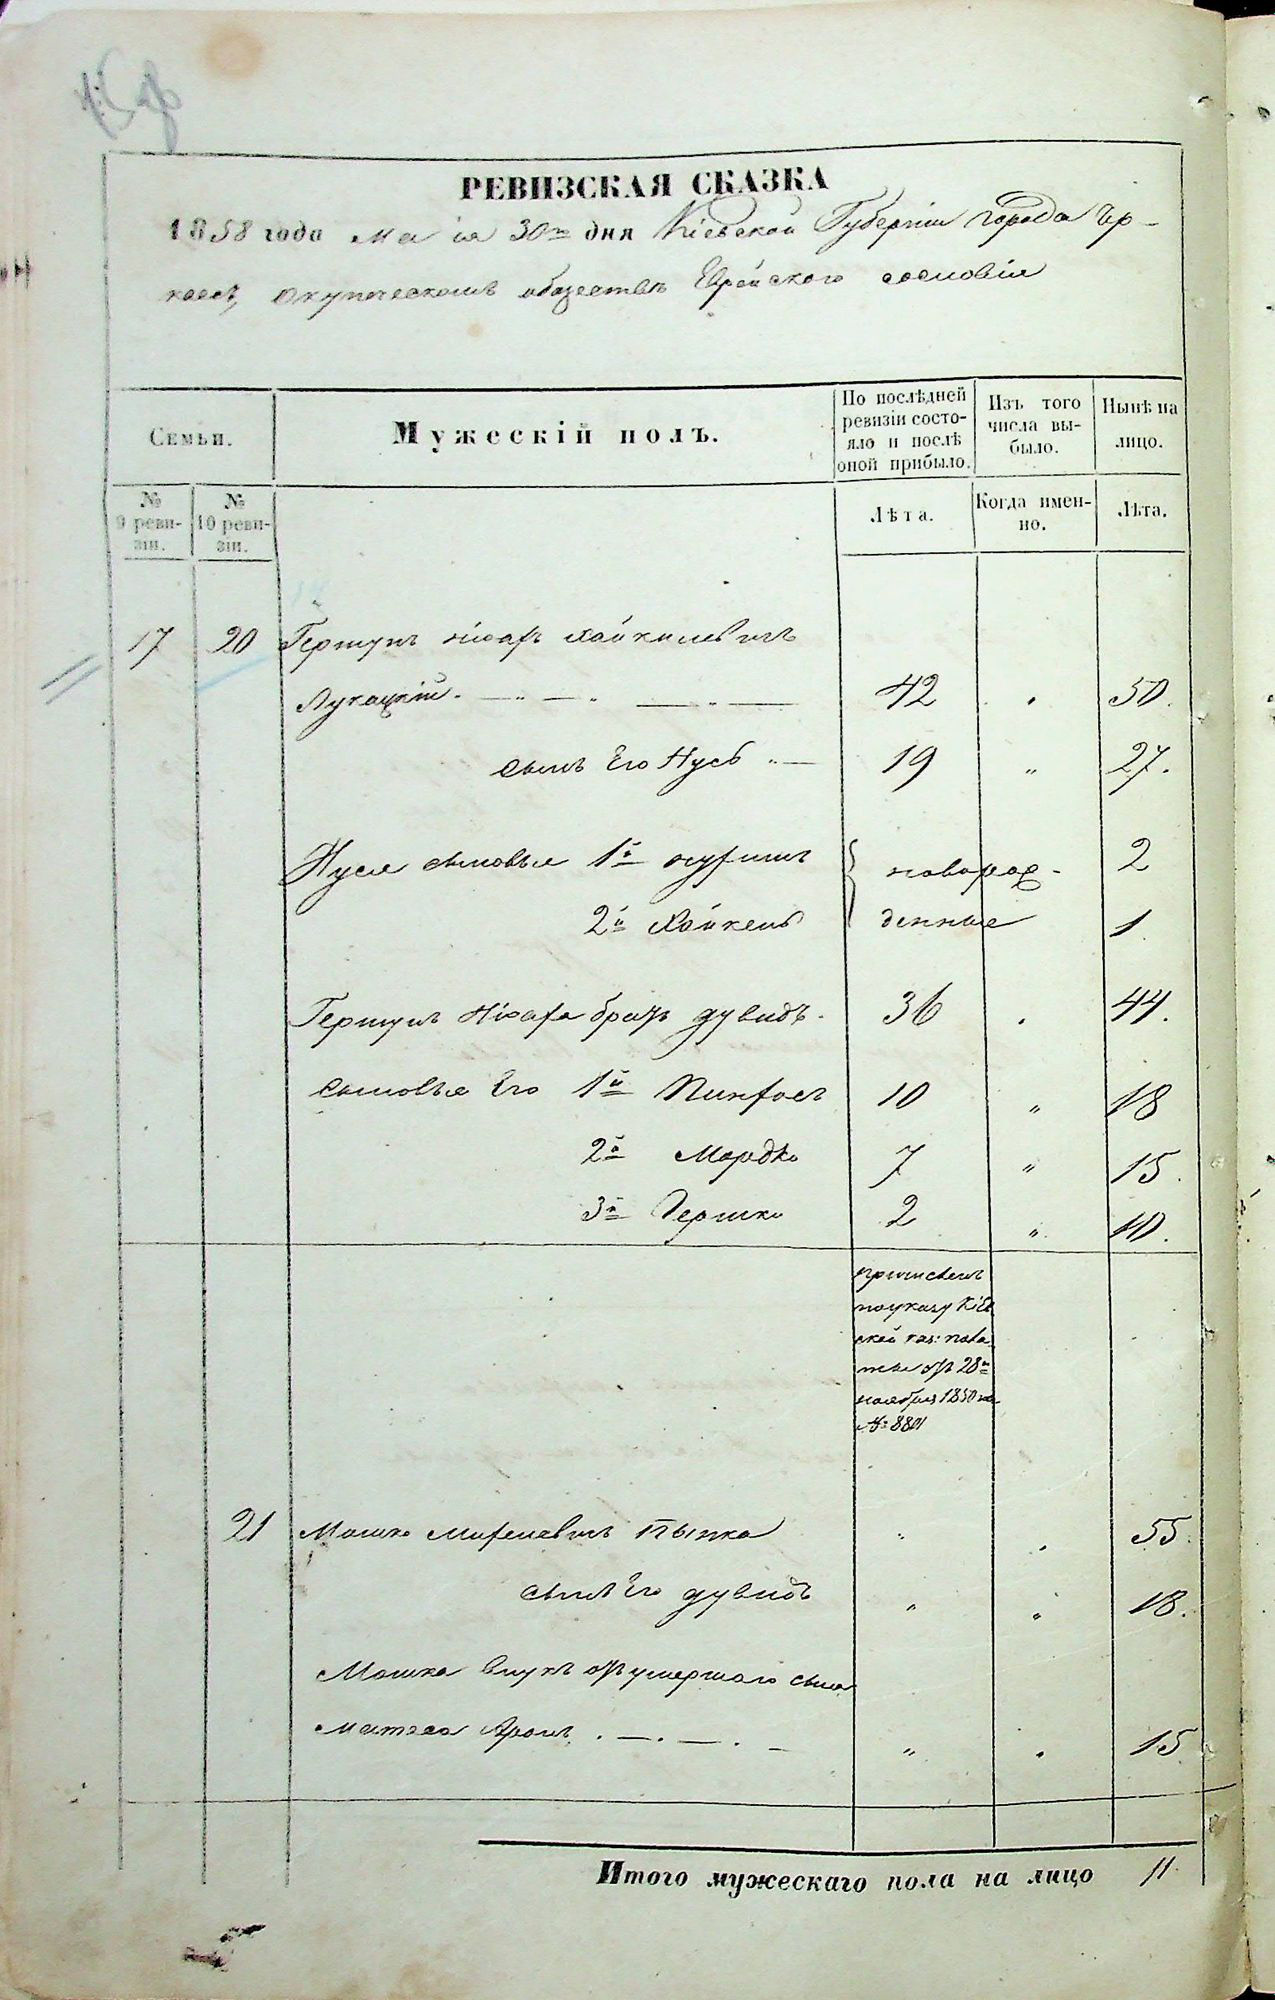 РЕВИЗСКАЯ СКАЗКА
1858 года Маія 30го дня Кіевской Губерніи города Чер-
касъ, окупеческомъ обществѣ Еврейского сословія
Семьи.
Мужескій полъ.
По послѣдней ревизіи состояло и послѣ оной прибыло.
Изъ того числа выбыло.
Нынѣ на лицо.
№ 9 ревизіи.
№ 10 ревизіи.
Лѣта.
Когда именно.
Лѣта.
17 20 Гершунъ Хайкилевичъ
Лукацкій. 42 50.
сынъ Его Нусь 19 27.
Нуся сыновья 1й новорож- 2
2й Хайкель денные 1
Гершуна братъ Дувидъ. 36 44.
сыновья Его 1й Пинхосъ 10 " 18
2й Мордко 7 " 15.
3й Гершко 2 " 10.
приписанъ
поуказу Кіев
ской каз: пала
ты отъ 28го
ноября 1850 за
№ 8801
21 Мошко Пынка " 55.
сынъ Его Дувидъ " " 18.
Мошка внукъ отъ умершаго сына
Матеса Аронъ " 15
Итого мужескаго пола на лицо 11